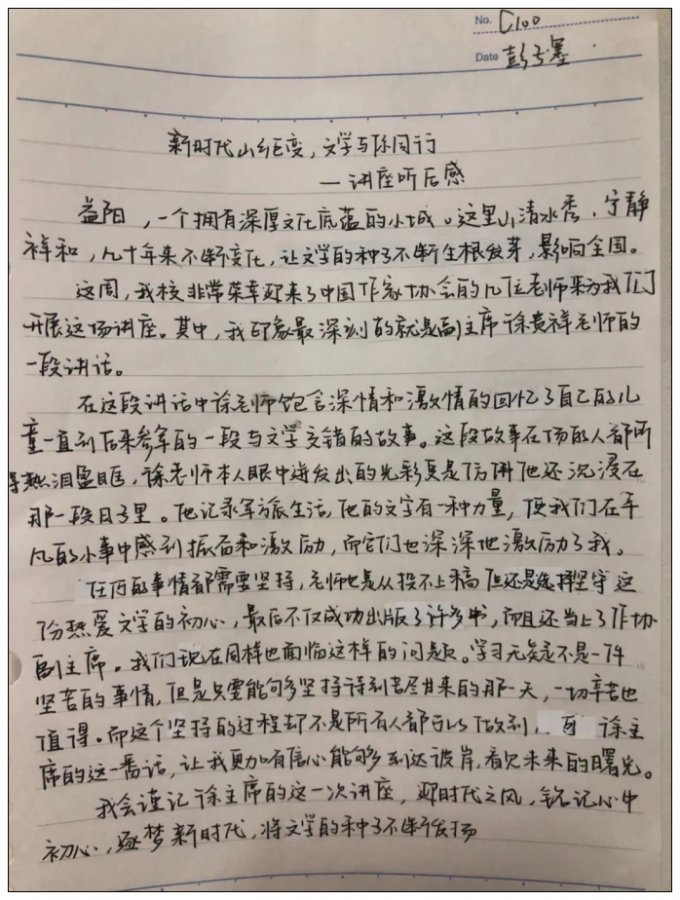 No. C100
Date 彭子
新时代山乡巨变，文学与你同行
—讲座听后感
益阳，一个拥有深厚文化底蕴的小城。这里山清水秀，宁静
祥和，几十年来不断变化，让文学的种子不断生根发芽，影响全国。
这周，我校非常荣幸迎来了中国作家协会的几位老师来为我们
开展这场讲座。其中，我印象最深刻的就是副主席徐贵祥老师的
一段讲话。
在这段讲话中徐老师饱含深情和激情的回忆了自己的儿
童一直到后来参军的一段与文学交错的故事。这段故事在场的人都所
热泪盈眶，徐老师本人眼中迸发出的光彩更是仿佛他还沉浸在
那一段日子里。他记录军旅生活，他的文字有一种力量，使我们在平
凡的小事中感到振奋和激励，而它们也深深地激励了我。
任何的事情都需要坚持，老师也是从投不上稿但还是选择坚守这
份热爱文学的初心，最后不仅成功出版了许多书，而且还当上了作协
副主席。我们现在同样也面临这样的问题。学习无疑不是一件
坚苦的事情，但是只要能够多坚持待到苦尽甘来的那一天，一切辛苦也
值得。而这个坚持的过程却不是所有人都可以做到，而 徐主
席的这一番话，让我更加有信心能够到达彼岸，看见未来的曙光。
我会谨记徐主席的这一次讲座，迎时代之风，铭记心中
初心，逐梦新时代，将文学的种子不断发扬